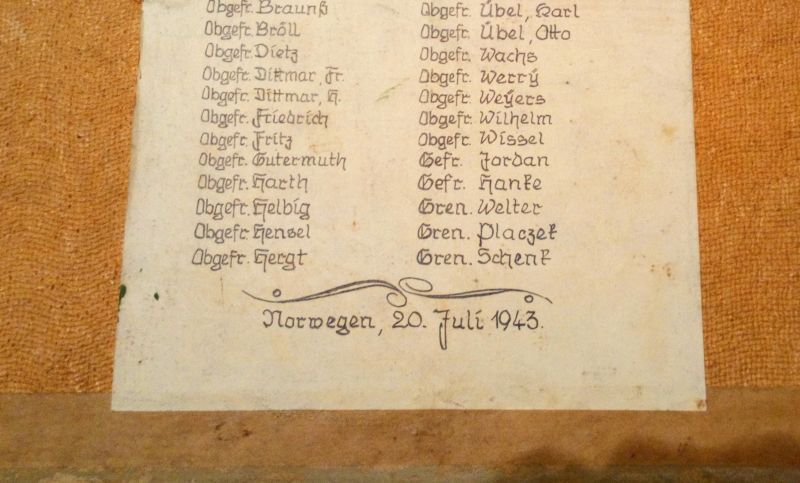 Obgefr. Braunß
Obgefr. Bröll
Obgefr. Dietz
Obgefr. Dittmar, Fr.
Obgefr. Dittmar, H.
Obgefr. Friedrich
Obgefr. Fritz
Obgefr. Gutermuth
Obgefr. Harth
Obgefr. Helbig
Obgefr. Hensel
Obgefr. Hergt
Obgefr. Übel, Karl
Obgefr. Übel, Otto
Obgefr. Wachs
Obgefr. Werrÿ
Obgefr. Weÿers
Obgefr. Wilhelm
Obgefr. Wissel
Gefr. Jordan
Gefr. Hanke
Gren. Welter
Gren. Placzek
Gren. Schenk
Norwegen, 20. Juli 1943.